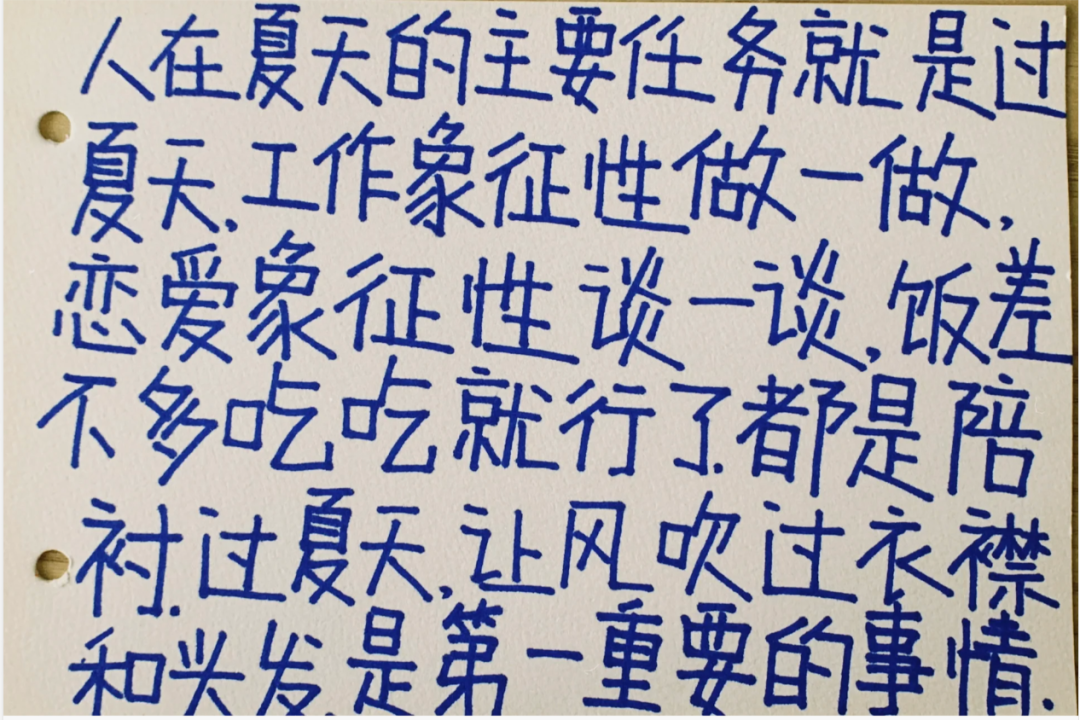 人在夏天的主要任务就是过
夏天,工作象征性做一做,
恋爱象征性谈一谈,饭差
不多吃吃就行了.都是陪
衬.过夏天,让风吹过衣襟
和头发,是第一重要的事情.